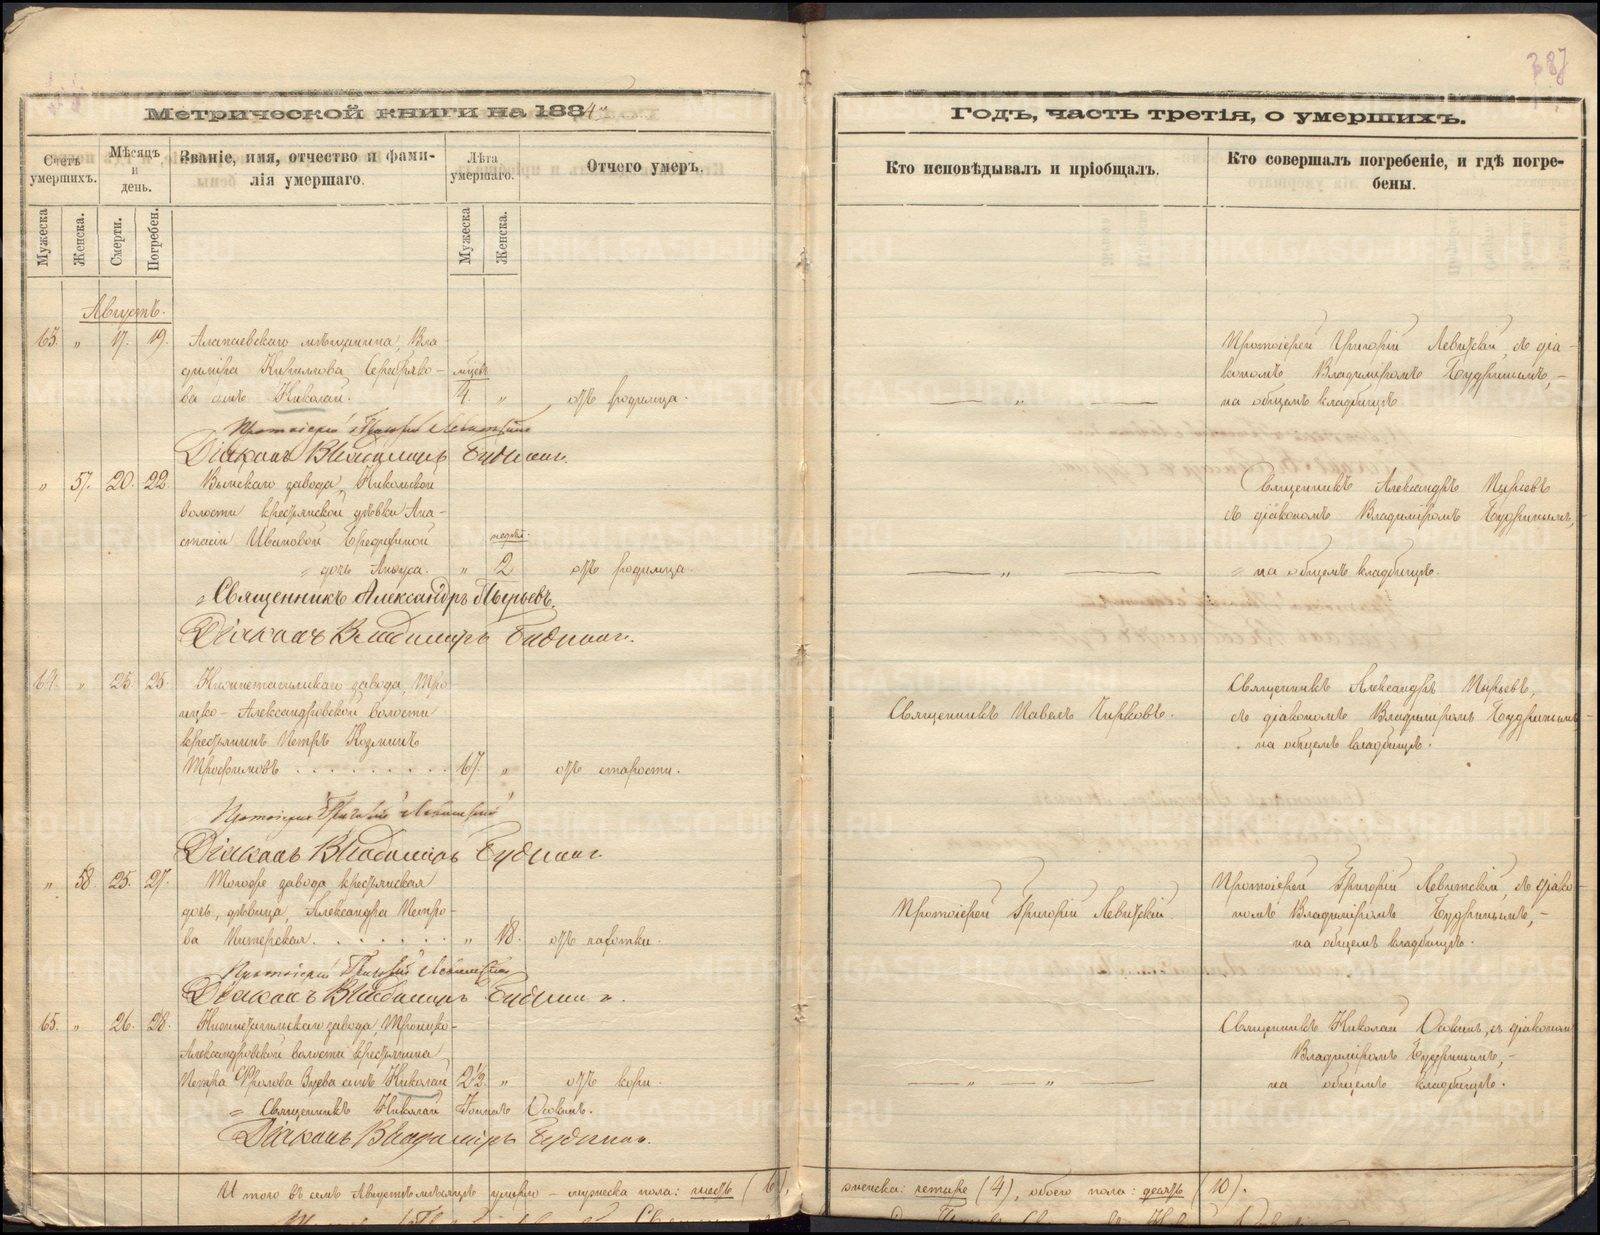 387
Метрической книги на 1884 й
Годъ, часть третія, о умершихъ.
Счетъ умершихъ.
Мѣсяцъ и день.
Званіе, имя, отчество и фами-
лія умершаго.
Лѣта умершаго.
Отчего умеръ.
Кто исповѣдывалъ и пріобщалъ.
Кто совершалъ погребеніе, и гдѣ погре-
бены.
Мужеска
Женска.
Смерти.
Погребен.
Мужеска
Женска.
Августъ.
63. " 17. 19. Алапаевскаго мѣщанина, Вла
диміра Кирилова Серебряко-
ва сынъ Николай. 4. " отъ родимца.
Протоіерей Григорій Левитскій, съ діа-
кономъ Владиміромъ Будринымъ,-
на общемъ кладбищѣ
Протоіерей Григорій Левитскій
Діаконъ Владиміръ Будринъ.
" 57. 20. 22. Выйскаго завода, Никольской
волости крестьянской дѣвки Ана-
стасіи Ивановой
недѣл.
дочь " 2 отъ родимца.
Священникъ Александръ Пырьевъ
съ діакономъ Владиміромъ Будринымъ,
на общемъ кладбищѣ.
Священникъ Александръ Пырьевъ.
Діаконъ Владиміръ Будринъ.
64. " 25. 25. Нижнетагильскаго завода, Тро-
ицко-Александровской волости
крестьянинъ Петръ Козминъ
Трофимовъ 67. " отъ старости.
Священникъ Павелъ Чирковъ.
Священникъ Александръ Пырьевъ,
съ діакономъ Владиміромъ Будринымъ
на общемъ кладбищѣ.
Протоіерей Григорій Левитскій
Діаконъ Владиміръ Будринъ.
" 58. 25. 27. Тогоже завода крестьянская
дочь, дѣвица, Александра Петро-
ва Питерская. " 18. отъ чахотки.
Протоіерей Григорій Левитскій.
Протоіерей Григорій Левитскій, съ діако-
номъ Владиміромъ Будринымъ,-
на общемъ кладбищѣ.
Протоіерей Григорій Левитскій
Діаконъ Владиміръ Будринъ.
65. " 26. 28. Нижнетагильскаго завода, Троицко-
Александровской волости крестьянина
Петра Фролова Зуева сынъ Николай 2½ " отъ кори.
Священникъ Николай Осокинъ, съ діакономъ
Владиміромъ Будринымъ,-
на общемъ кладбищѣ.
Священникъ Николай Осокинъ.
Діаконъ Владиміръ Будринъ.
И того въ семъ Августѣ мѣсяцѣ умерло - мужеска пола: шесть (6),
женска: четыре (4), обоего пола: десять (10).